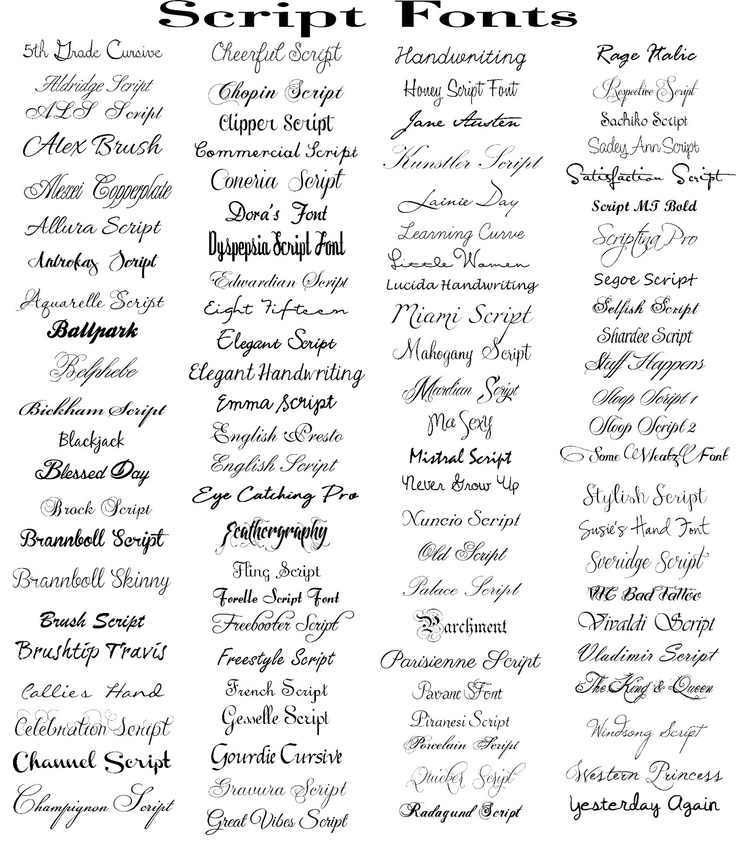 Script Fonts
5th Grade Cursive
Aldridge Script
ALS Script
Alex Brush
Alexei Copperplate
Allura Script
Antrokax Script
Aquarelle Script
Ballpark
Belphebe
Bickham Script
Blackjack
Blessed Day
Brock Script
Brannboll Script
Brannboll Skinny
Brush Script
Brushtip Travis
Callies Hand
Celebration Script
Channel Script
Champignon Script
Cheerful Script
Chopin Script
Clipper Script
Commercial Script
Coneria Script
Dora's Font
Dyspepsia Script Font
Edwardian Script
Eight Fifteen
Elegant Script
Elegant Handwriting
Emma Script
English Presto
English Script
Eye Catching Pro
Feathergraphy
Fling Script
Forelle Script Font
Freebooter Script
Freestyle Script
French Script
Gesselle Script
Gourdie Cursive
Gravura Script
Great Vibes Script
Handwriting
Honey Script Font
Jane Austen
Kunstler Script
Lainie Day
Learning Curve
Little Women
Lucida Handwriting
Miami Script
Mahogany Script
Mardian Script
Ma Sexy
Mistral Script
Never Grow Up
Nuncio Script
Old Script
Palace Script
Parchment
Parisienne Script
Pavane Font
Piranesi Script
Porcelain Script
Quicker Script
Radagund Script
Rage Italic
Respective Script
Sachiko Script
Sadey Ann Script
Satisfaction Script
Script MT Bold
Scriptina Pro
Segoe Script
Selfish Script
Shardee Script
Stuff Happens
Sloop Script 1
Sloop Script 2
Some Font
Stylish Script
Susie's Hand Font
Sveridge Script
VTC Bad Tattoo
Vivaldi Script
Vladimir Script
The King & Queen
Windsong Script
Western Princess
Yesterday Again